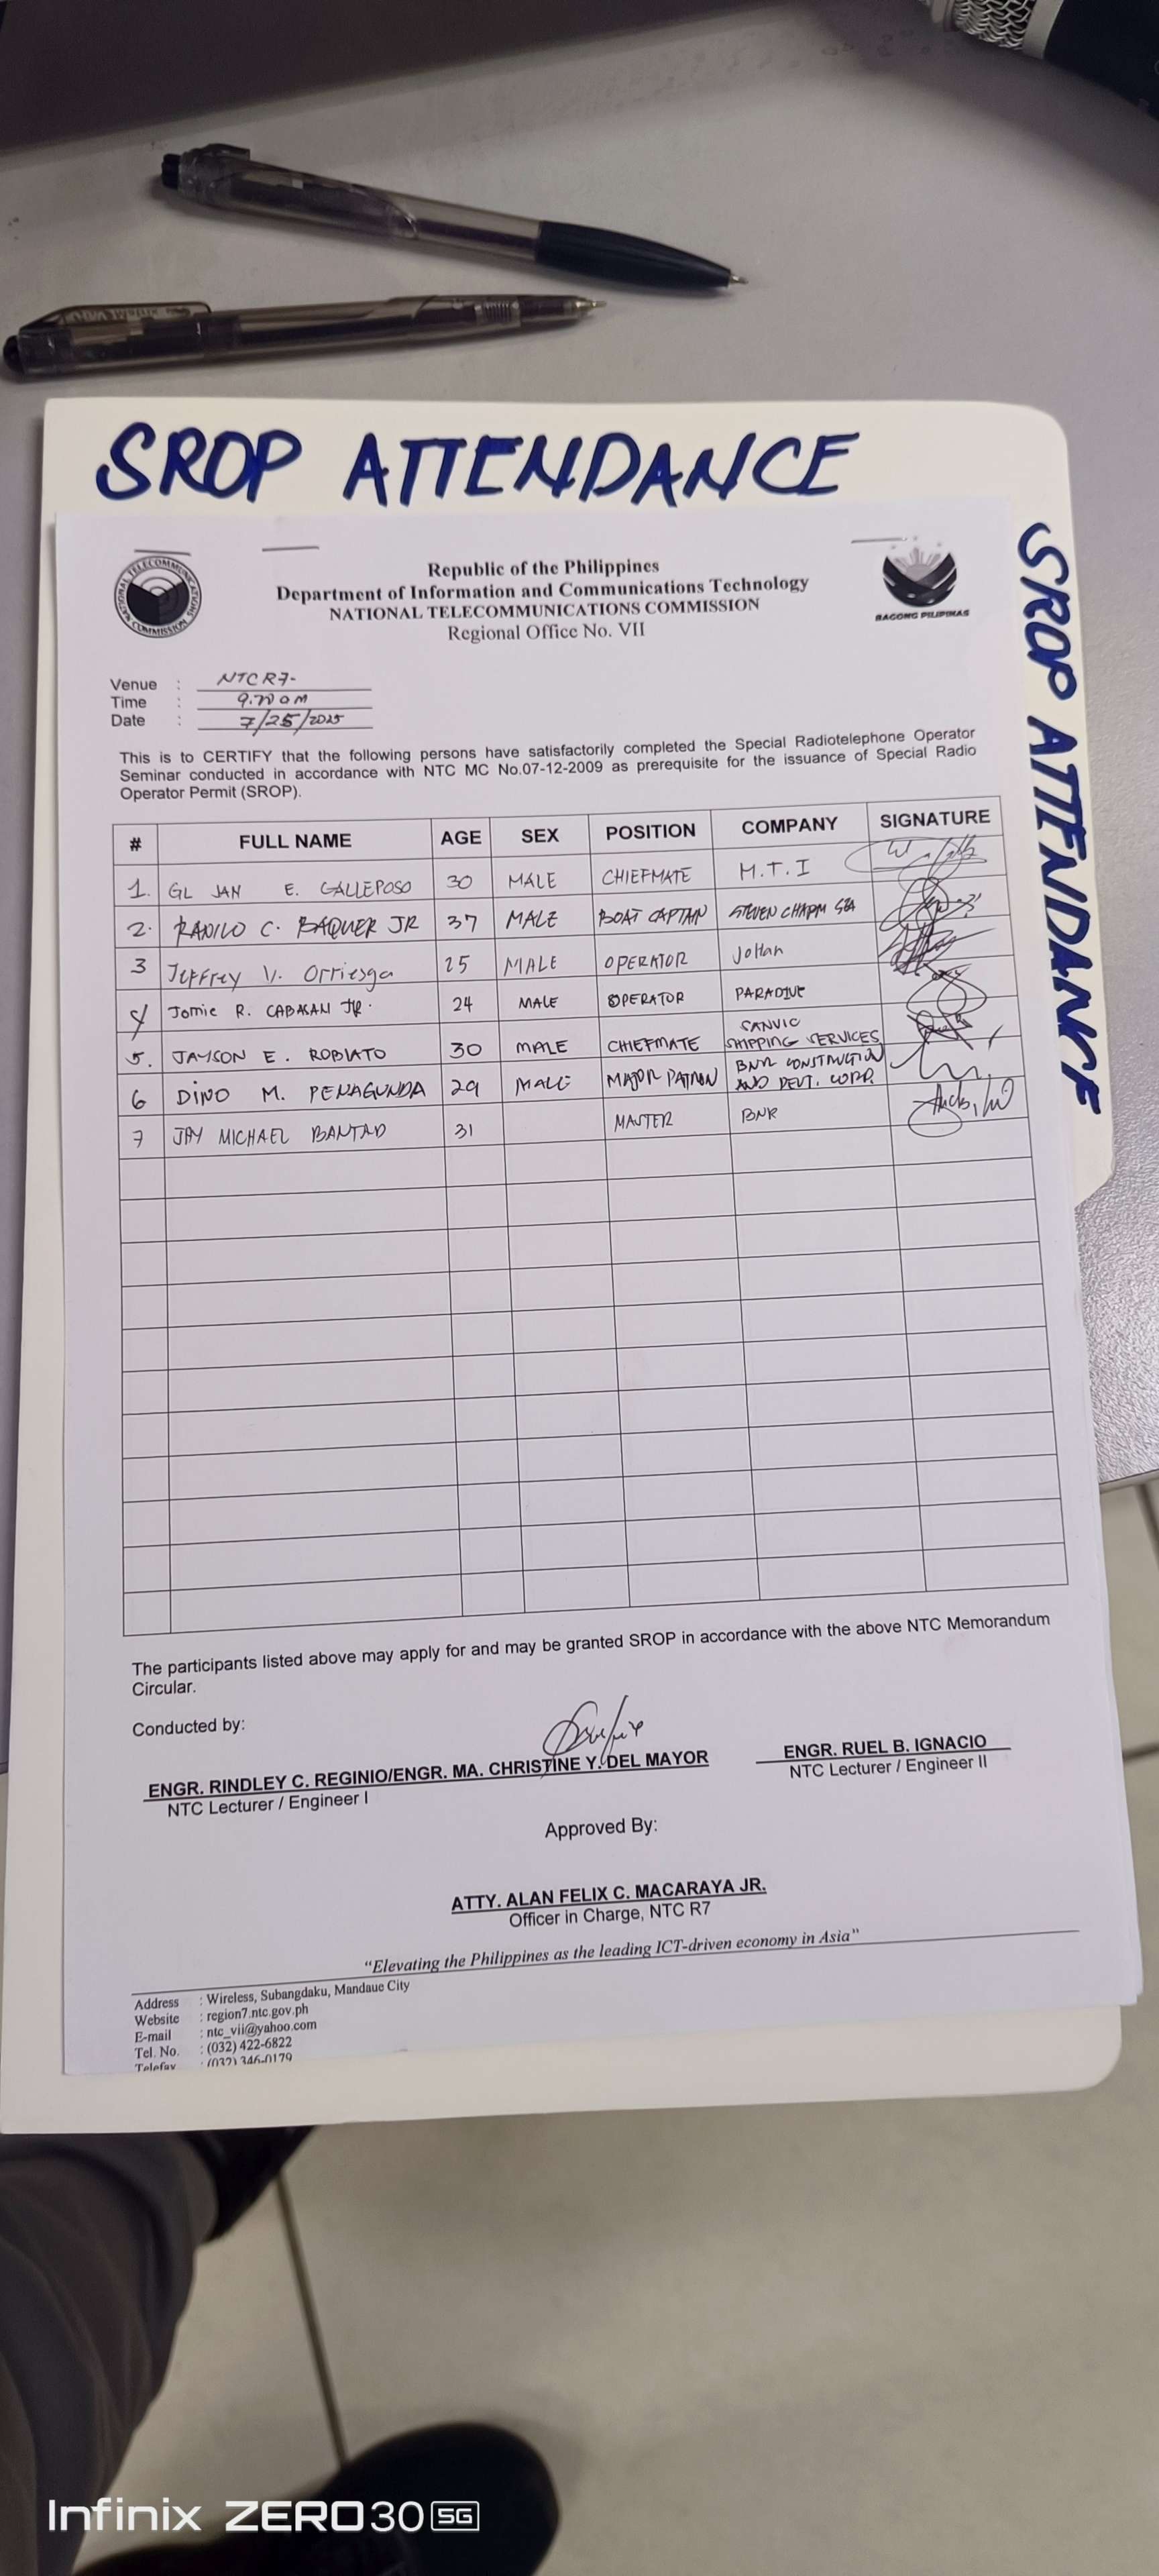 SROP ATTENDANCE
SROP ATTENDANCE
NATIONAL TELECOMMUNICATIONS COMMISSION
BAGONG PILIPINAS
Republic of the Philippines
Department of Information and Communications Technology
NATIONAL TELECOMMUNICATIONS COMMISSION
Regional Office No. VII
Venue : NTC R7-
Time :
Date : 7/25/2025
This is to CERTIFY that the following persons have satisfactorily completed the Special Radiotelephone Operator
Seminar conducted in accordance with NTC MC No.07-12-2009 as prerequisite for the issuance of Special Radio
Operator Permit (SROP).
# FULL NAME AGE SEX POSITION COMPANY SIGNATURE
1. GL JAN E. GALLEPOSO 30 MALE CHIEFMATE M.T.I
2. C. BAQUER JR 37 MALE BOAT CAPTAIN STEVEN SEA
3 Jeffrey V. Orriesga 25 MALE OPERATOR JoHan
4 Jomie R. CABASAN JR. 24 MALE OPERATOR
5. JAYSON E. ROBIATO 30 MALE CHIEFMATE SANVIC SHIPPING SERVICES
6 DINO M. PENAGUNDA 29 MALE MAJOR PATRON BNR CONSTRUCTION AND DEVT. CORP.
7 JAY MICHAEL BANTAD 31 MASTER BNR
The participants listed above may apply for and may be granted SROP in accordance with the above NTC Memorandum
Circular.
Conducted by:
ENGR. RINDLEY C. REGINIO/ENGR. MA. CHRISTINE Y. DEL MAYOR
NTC Lecturer / Engineer I
ENGR. RUEL B. IGNACIO
NTC Lecturer / Engineer II
Approved By:
ATTY. ALAN FELIX C. MACARAYA JR.
Officer in Charge, NTC R7
“Elevating the Philippines as the leading ICT-driven economy in Asia”
Address : Wireless, Subangdaku, Mandaue City
Website : region7.ntc.gov.ph
E-mail : ntc_vii@yahoo.com
Tel. No. : (032) 422-6822
Telefax : (032) 346-0179
Infinix ZERO30 5G